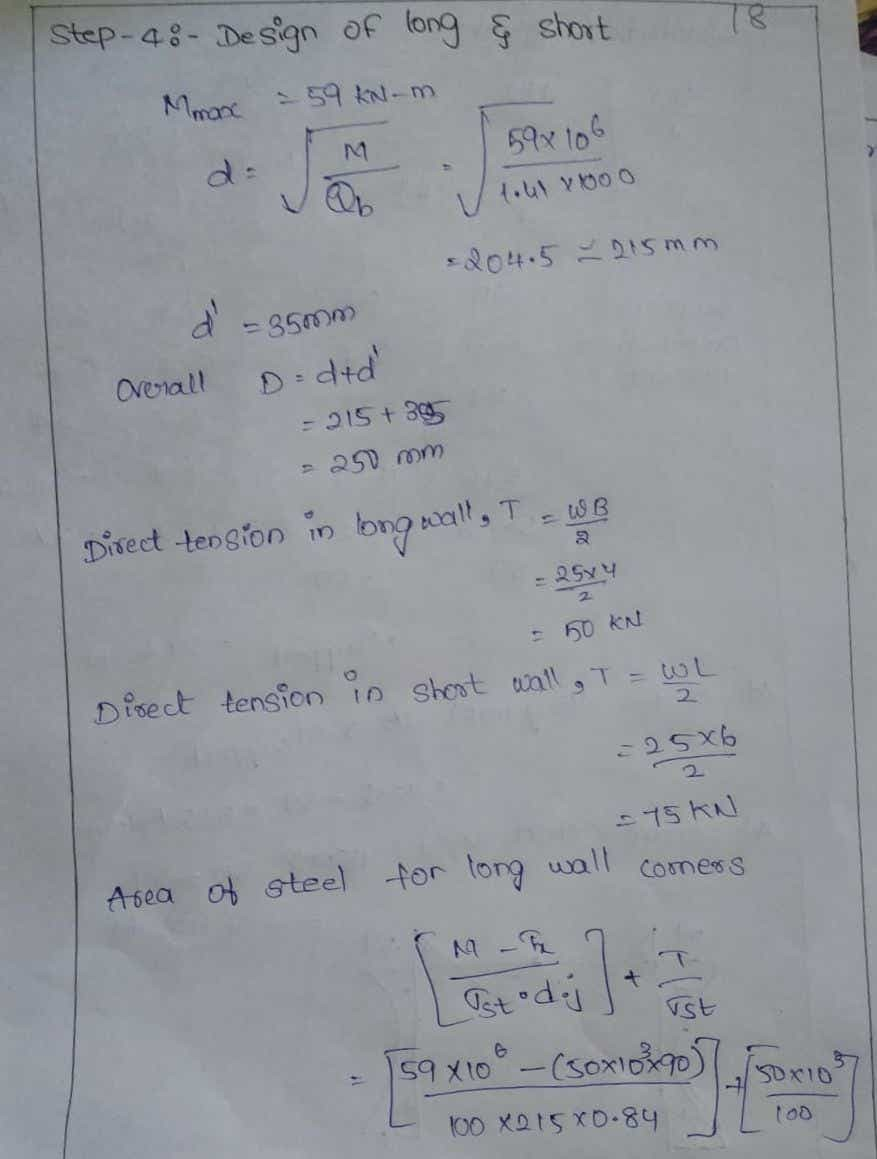 18
Step-4:- Design of long & short
Mmax = 59 KN-m
d = √(M/Qb) = √(59×10^6/1.41×1000)
= 204.5 ≃ 215mm
d' = 35mm
Overall D = d+d'
= 215+35
= 250 mm
Direct tension in long wall, T = WB/2
= 25×4/2
= 50 KN
Direct tension in short wall, T = WL/2
= 25×6/2
= 75 KN
Area of steel for long wall corners
[M - Tx/σst·d·j] + T/σst
= [59×10^6 - (50×10^3×90)/100×215×0.84] + [50×10^3/100]